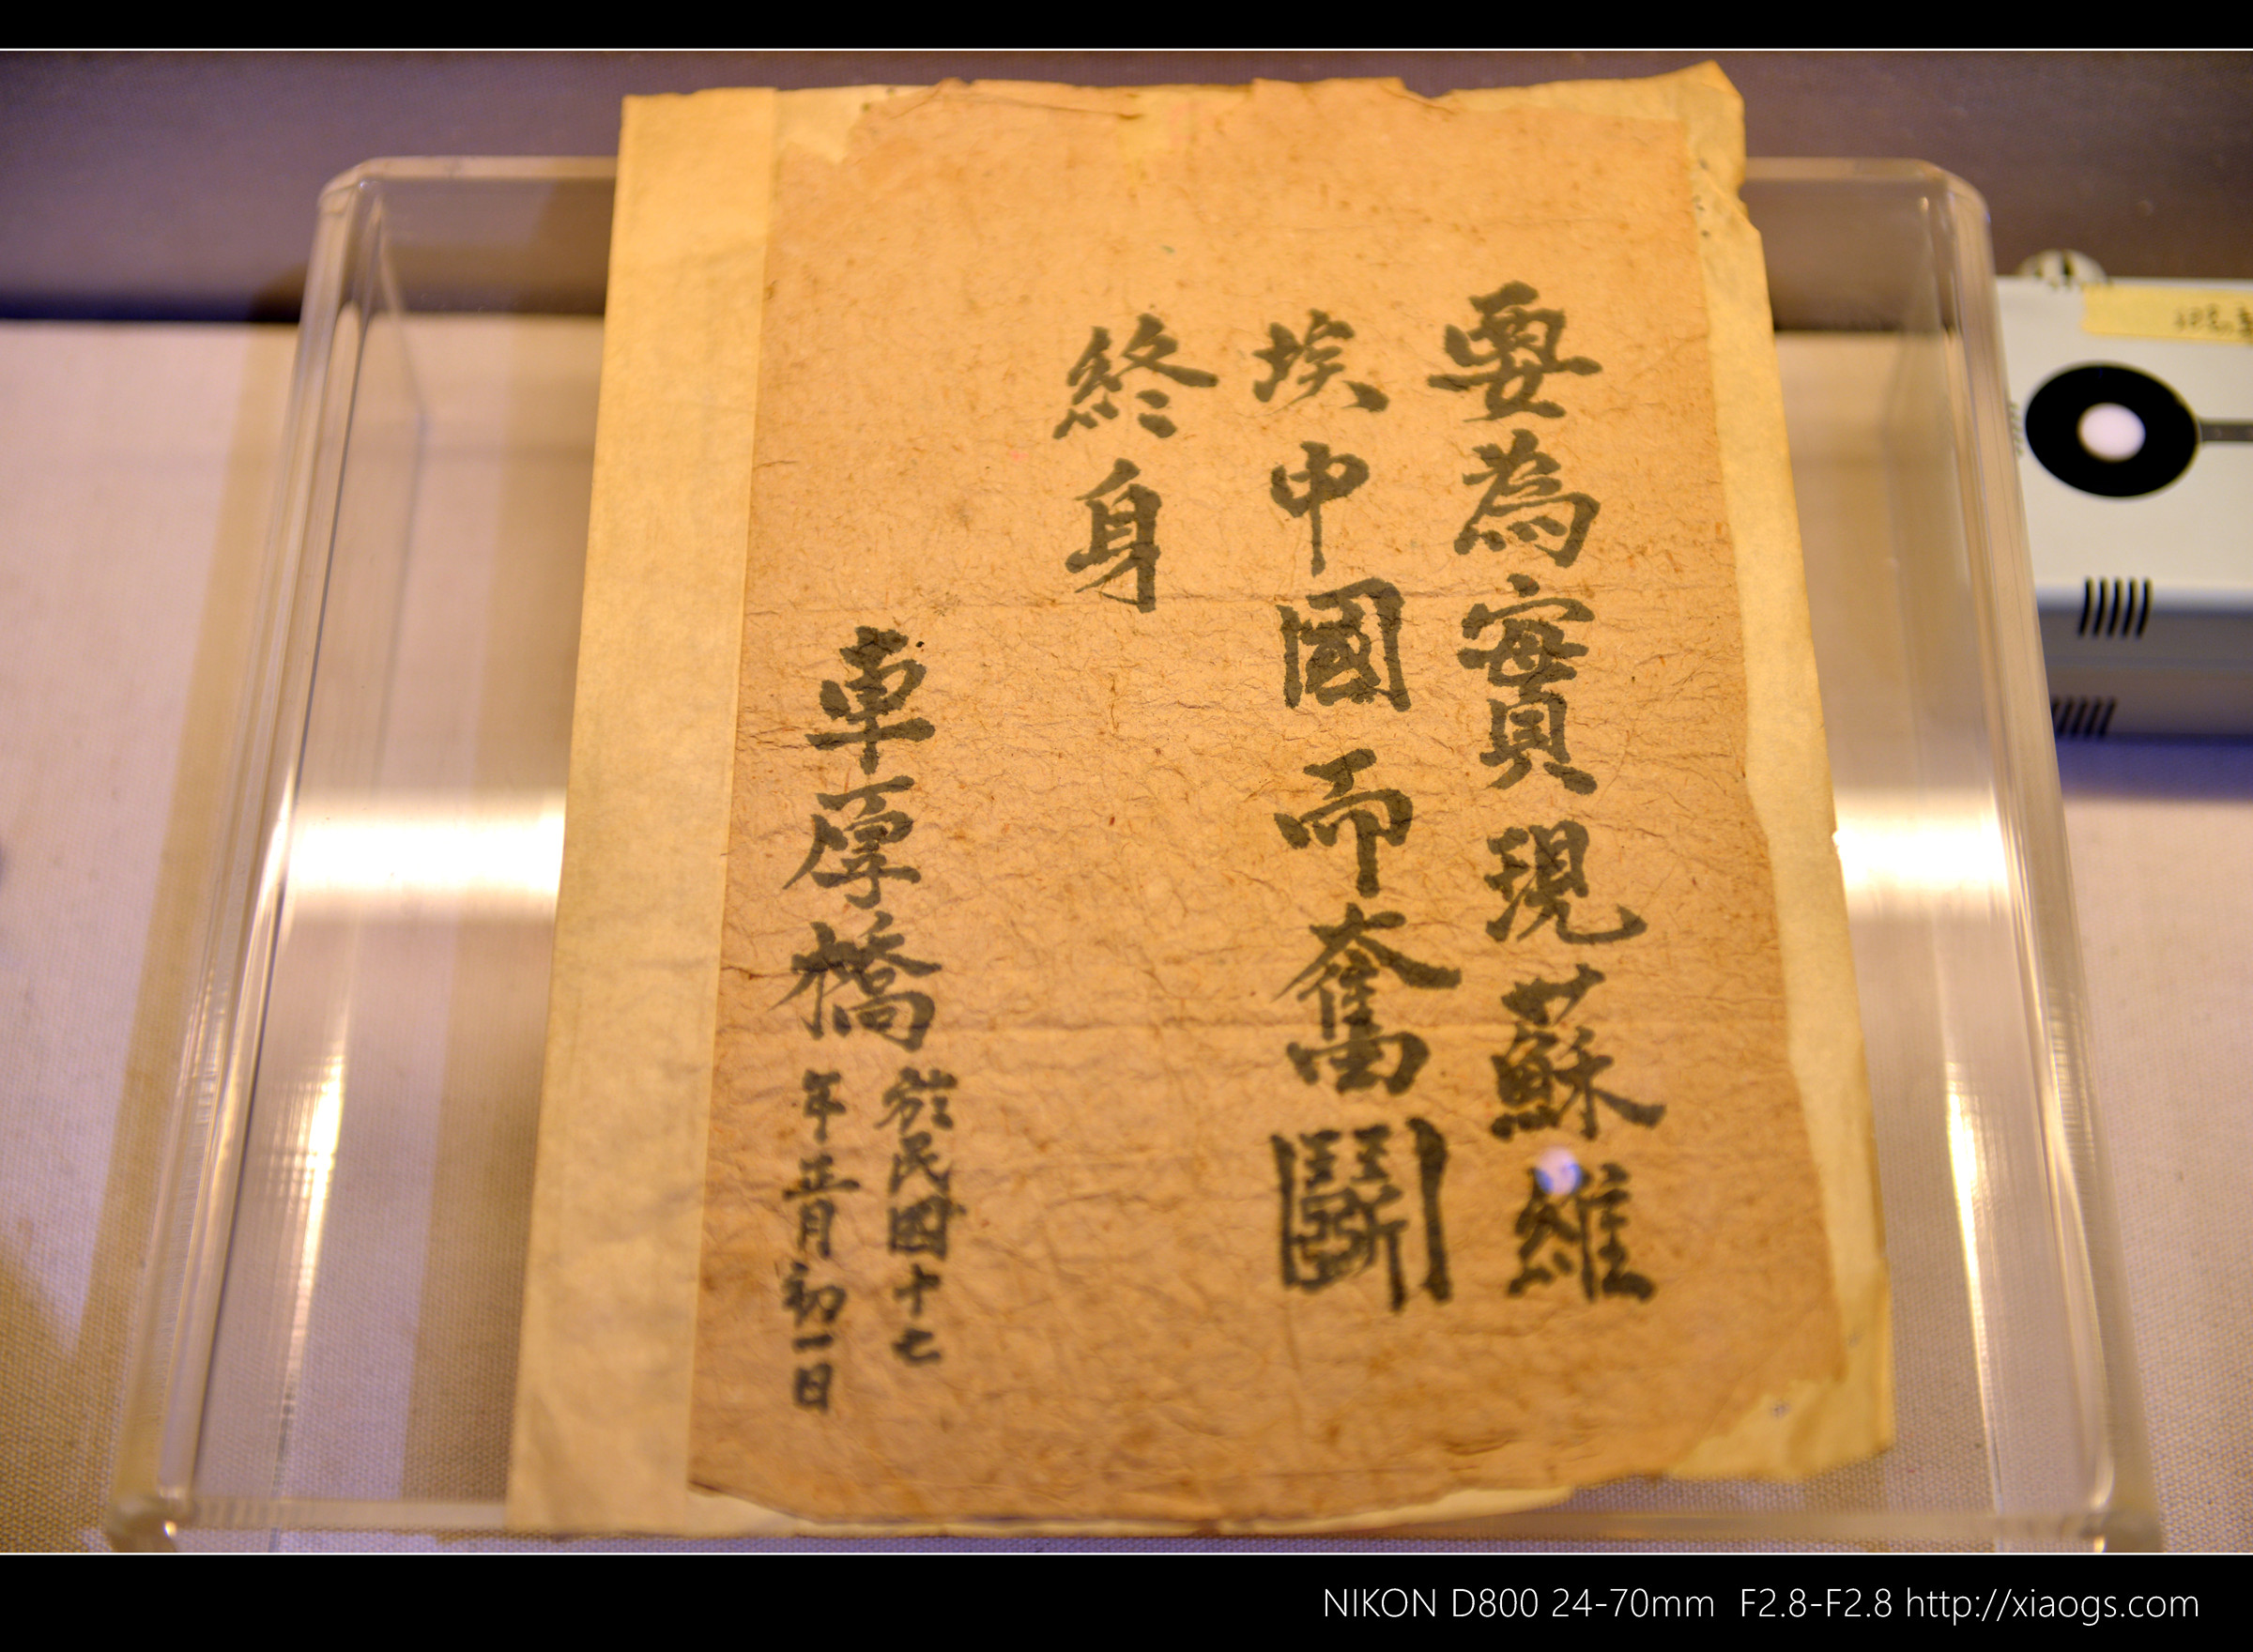 要為實現蘇維
埃中國而奮鬬
終身
車厚橋
於民國十七
年正月初一日
NIKON D800 24-70mm F2.8-F2.8 http://xiaogs.com